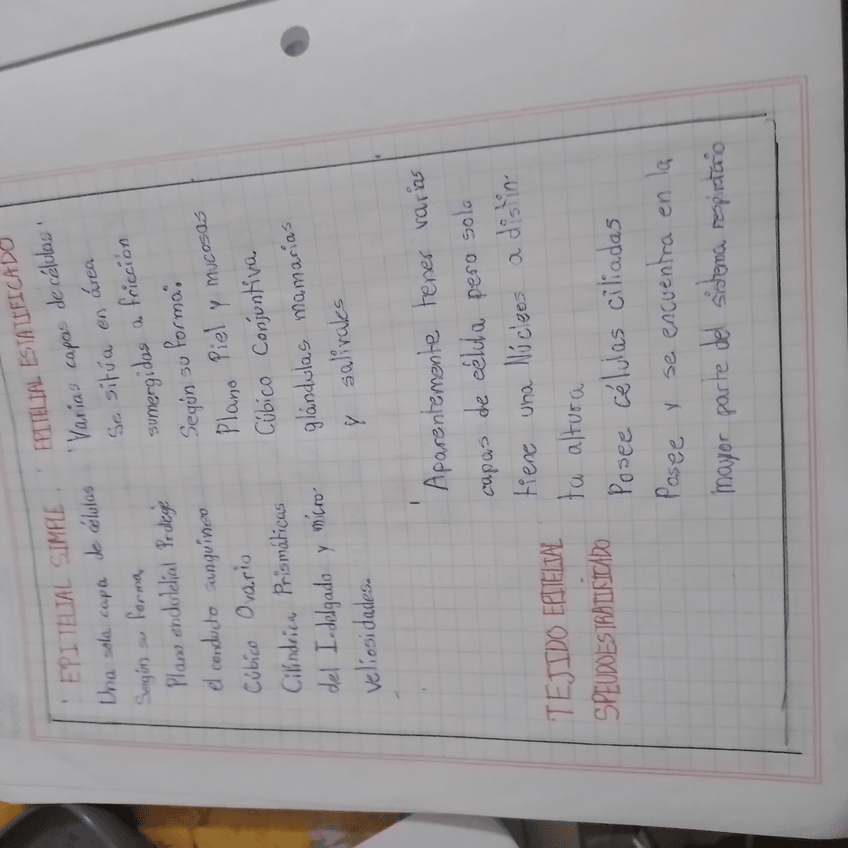 EPITELIAL SIMPLE.
Una sola capa de células
Según su forma
Plano endotelial Proteje
el conducto sanguineo
Cúbico Ovario
Cilíndrica Prismáticas
del I.delgado y micro-
veliosidades.
EPITELIAL ESTATIFICADO
Varias capas de células.
Se sitúa en área
sumergidas a fricción
Según su forma:
Plano Piel y mucosas
Cúbico Conjuntiva
glándulas mamarias
y salivales
TEJIDO EPITELIAL
SPEUDOESTRATIFICADO
Aparentemente tener varias
capas de célula pero solo
tiene una Núcleos a distin-
ta altura
Posee células ciliadas
Posee y se encuentra en la
mayor parte del sistema respiratorio